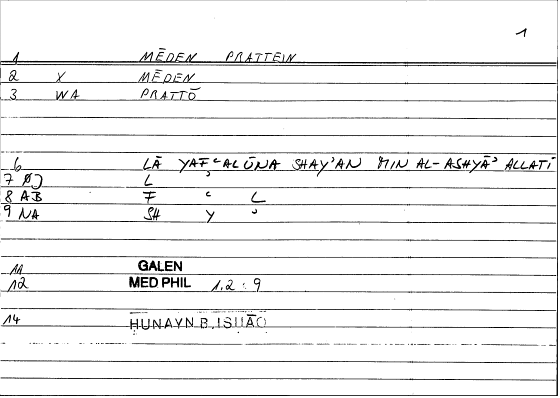 1
1 MĒDEN PRATTEIN
2 X MĒDEN
3 WA PRATTŌ
6 LĀ YAFʿALŪNA SHAYʾAN MIN AL-ASHYĀʾ ALLATĪ
7 ØJ L ʾ
8 AB F ʿ L
9 NA SH Y ʾ
11 GALEN
12 MED PHIL 1,2 : 9
14 HUNAYN B. ISHĀQ